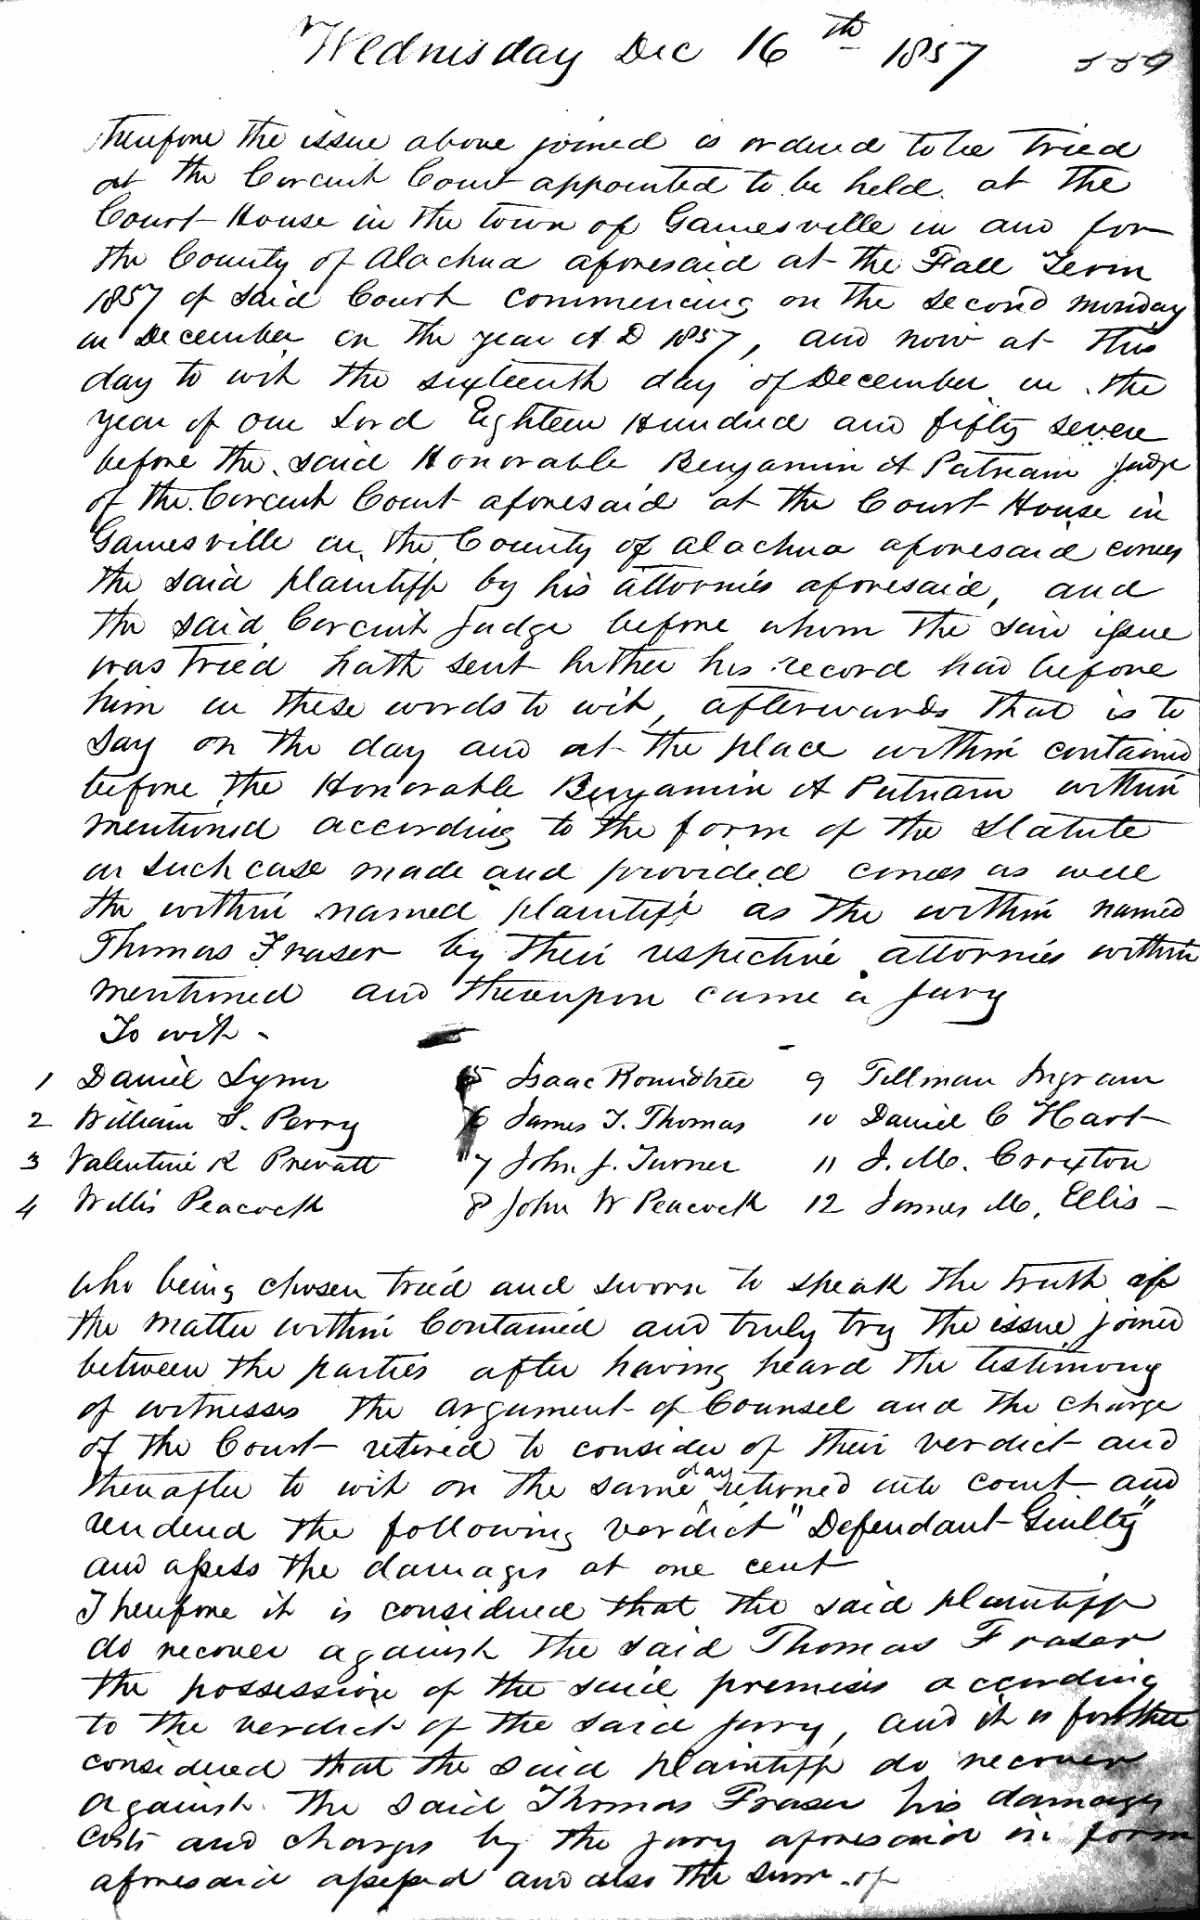 Wednesday Dec 16th 1857 559
therefore the issue above joined is ordered to be tried
at the Circuit Court appointed to be held at the
Court House in the town of Gainesville in and for
the County of Alachua aforesaid at the Fall Term
1857 of said Court commencing on the second monday
in December in the year A D 1857, and now at this
day to wit the sixteenth day of December in the
year of our Lord Eighteen Hundred and fifty seven
before the said Honorable Benjamin A Putnam Judge
of the Circuit Court aforesaid at the Court House in
Gainesville in the County of Alachua aforesaid comes
the said plaintiff by his attornies aforesaid, and
the said Circuit Judge before whom the said issue
was tried hath sent hither his record had before
him in these words to wit, afterwards that is to
say on the day and at the place within contained
before the Honorable Benjamin A Putnam within
mentioned according to the form of the Statute
in such case made and provided comes as well
the within named plaintiff as the within named
Thomas Fraser by their respective attornies within
mentioned and thereupon came a Jury
To wit -
1 Daniel Lynn 5 Isaac Roundtree 9 Tillman Ingram
2 William S. Perry 6 James T. Thomas 10 Daniel C Hart
3 Valentine R Prevatt 7 John J. Turner 11 J. M. Croxton
4 Willis Peacock 8 John W Peacock 12 James M. Ellis -
who being chosen tried and sworn to speak the truth of
the matter within Contained and truly try the issue joined
between the parties after having heard the testimony
of witnesses the argument of Counsel and the charge
of the Court retired to consider of their verdict and
thereafter to wit on the same day returned into court and
rendered the following verdict "Defendant Guilty"
and assess the damages at one cent
Therefore it is considered that the said plaintiff
do recover against the said Thomas Fraser
the possession of the said premises according
to the verdict of the said jury, and it is further
considered that the said plaintiff do recover
against the said Thomas Fraser his damages
costs and charges by the jury aforesaid in form
aforesaid assessed and also the sum of